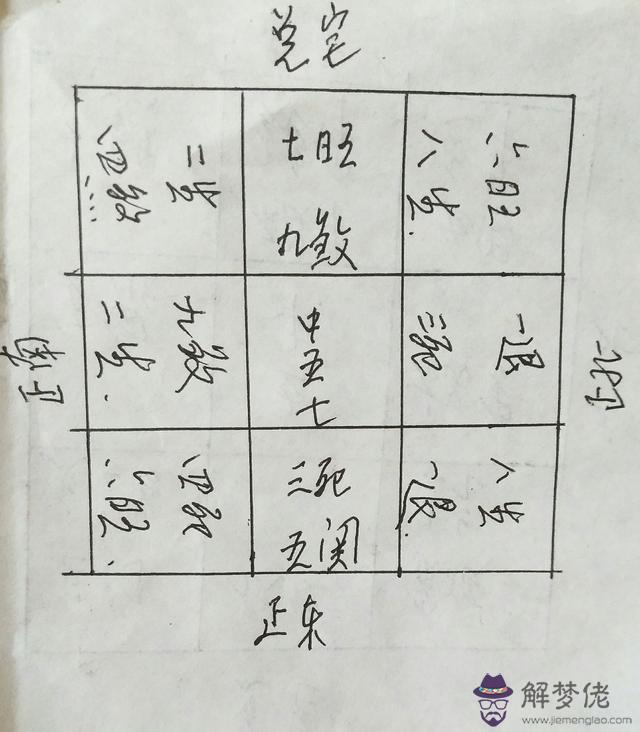 兑宅
二生
四
七旺
九煞
六旺
八生
正南
九煞
二生
中五七
一退
三死
正北
四死
六旺
三死
五関
八生
一退
正东
解梦佬
www.jiemenglao.com